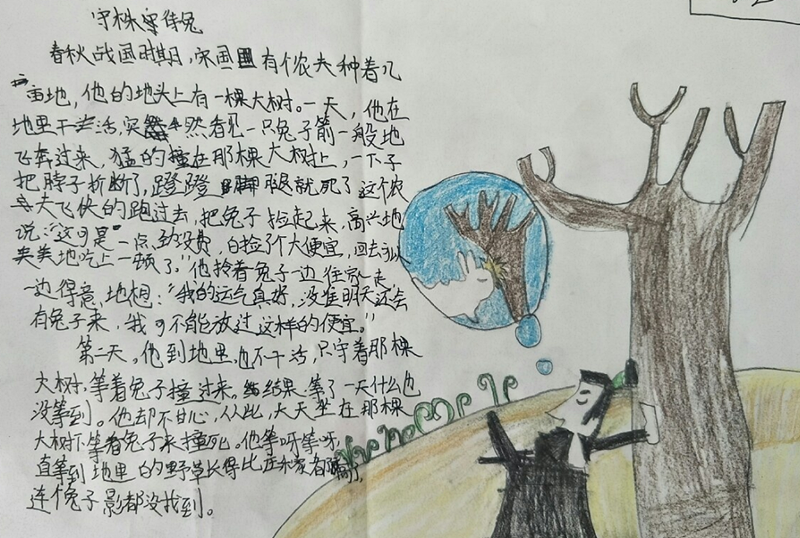 守株待兔
春秋战国时期,宋国有个农夫种着几
亩地,他的地头上有一棵大树。一天,他在
地里干活,突然看见一只兔子箭一般地
飞奔过来,猛的撞在那棵大树上,一下子
把脖子折断了,蹬蹬腿就死了这个农
夫飞快的跑过去,把兔子捡起来,高兴地
说:"这可是一点劲没费,白捡了个大便宜,回去可以
美美地吃上一顿了。"他拎着兔子一边往家走,
一边得意地想:"我的运气真好,没准明天还会
有兔子来,我可不能放过这样的便宜。"
第二天。他到地里,也不干活,只守着那棵
大树,等着兔子撞过来。结果,等了一天什么也
没等到。他却不甘心,从此,天天坐在那棵
大树下等着兔子来撞死。他等呀等呀,
直等到地里的野草长得比庄稼都高了,
连个兔子影都没找到。